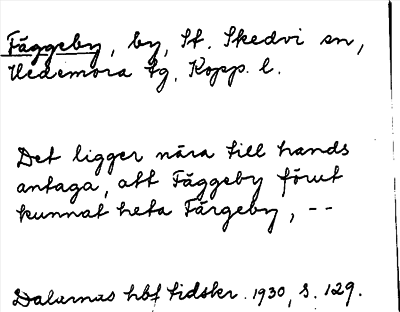 Fäggeby, by, St. Skedvi sn,
Hedemora tg, Kopp. l.
Det ligger nära till hands
antaga, att Fäggeby förut
kunnat heta Färgeby, --
Dalarnas hbf tidskr. 1930, s. 129.